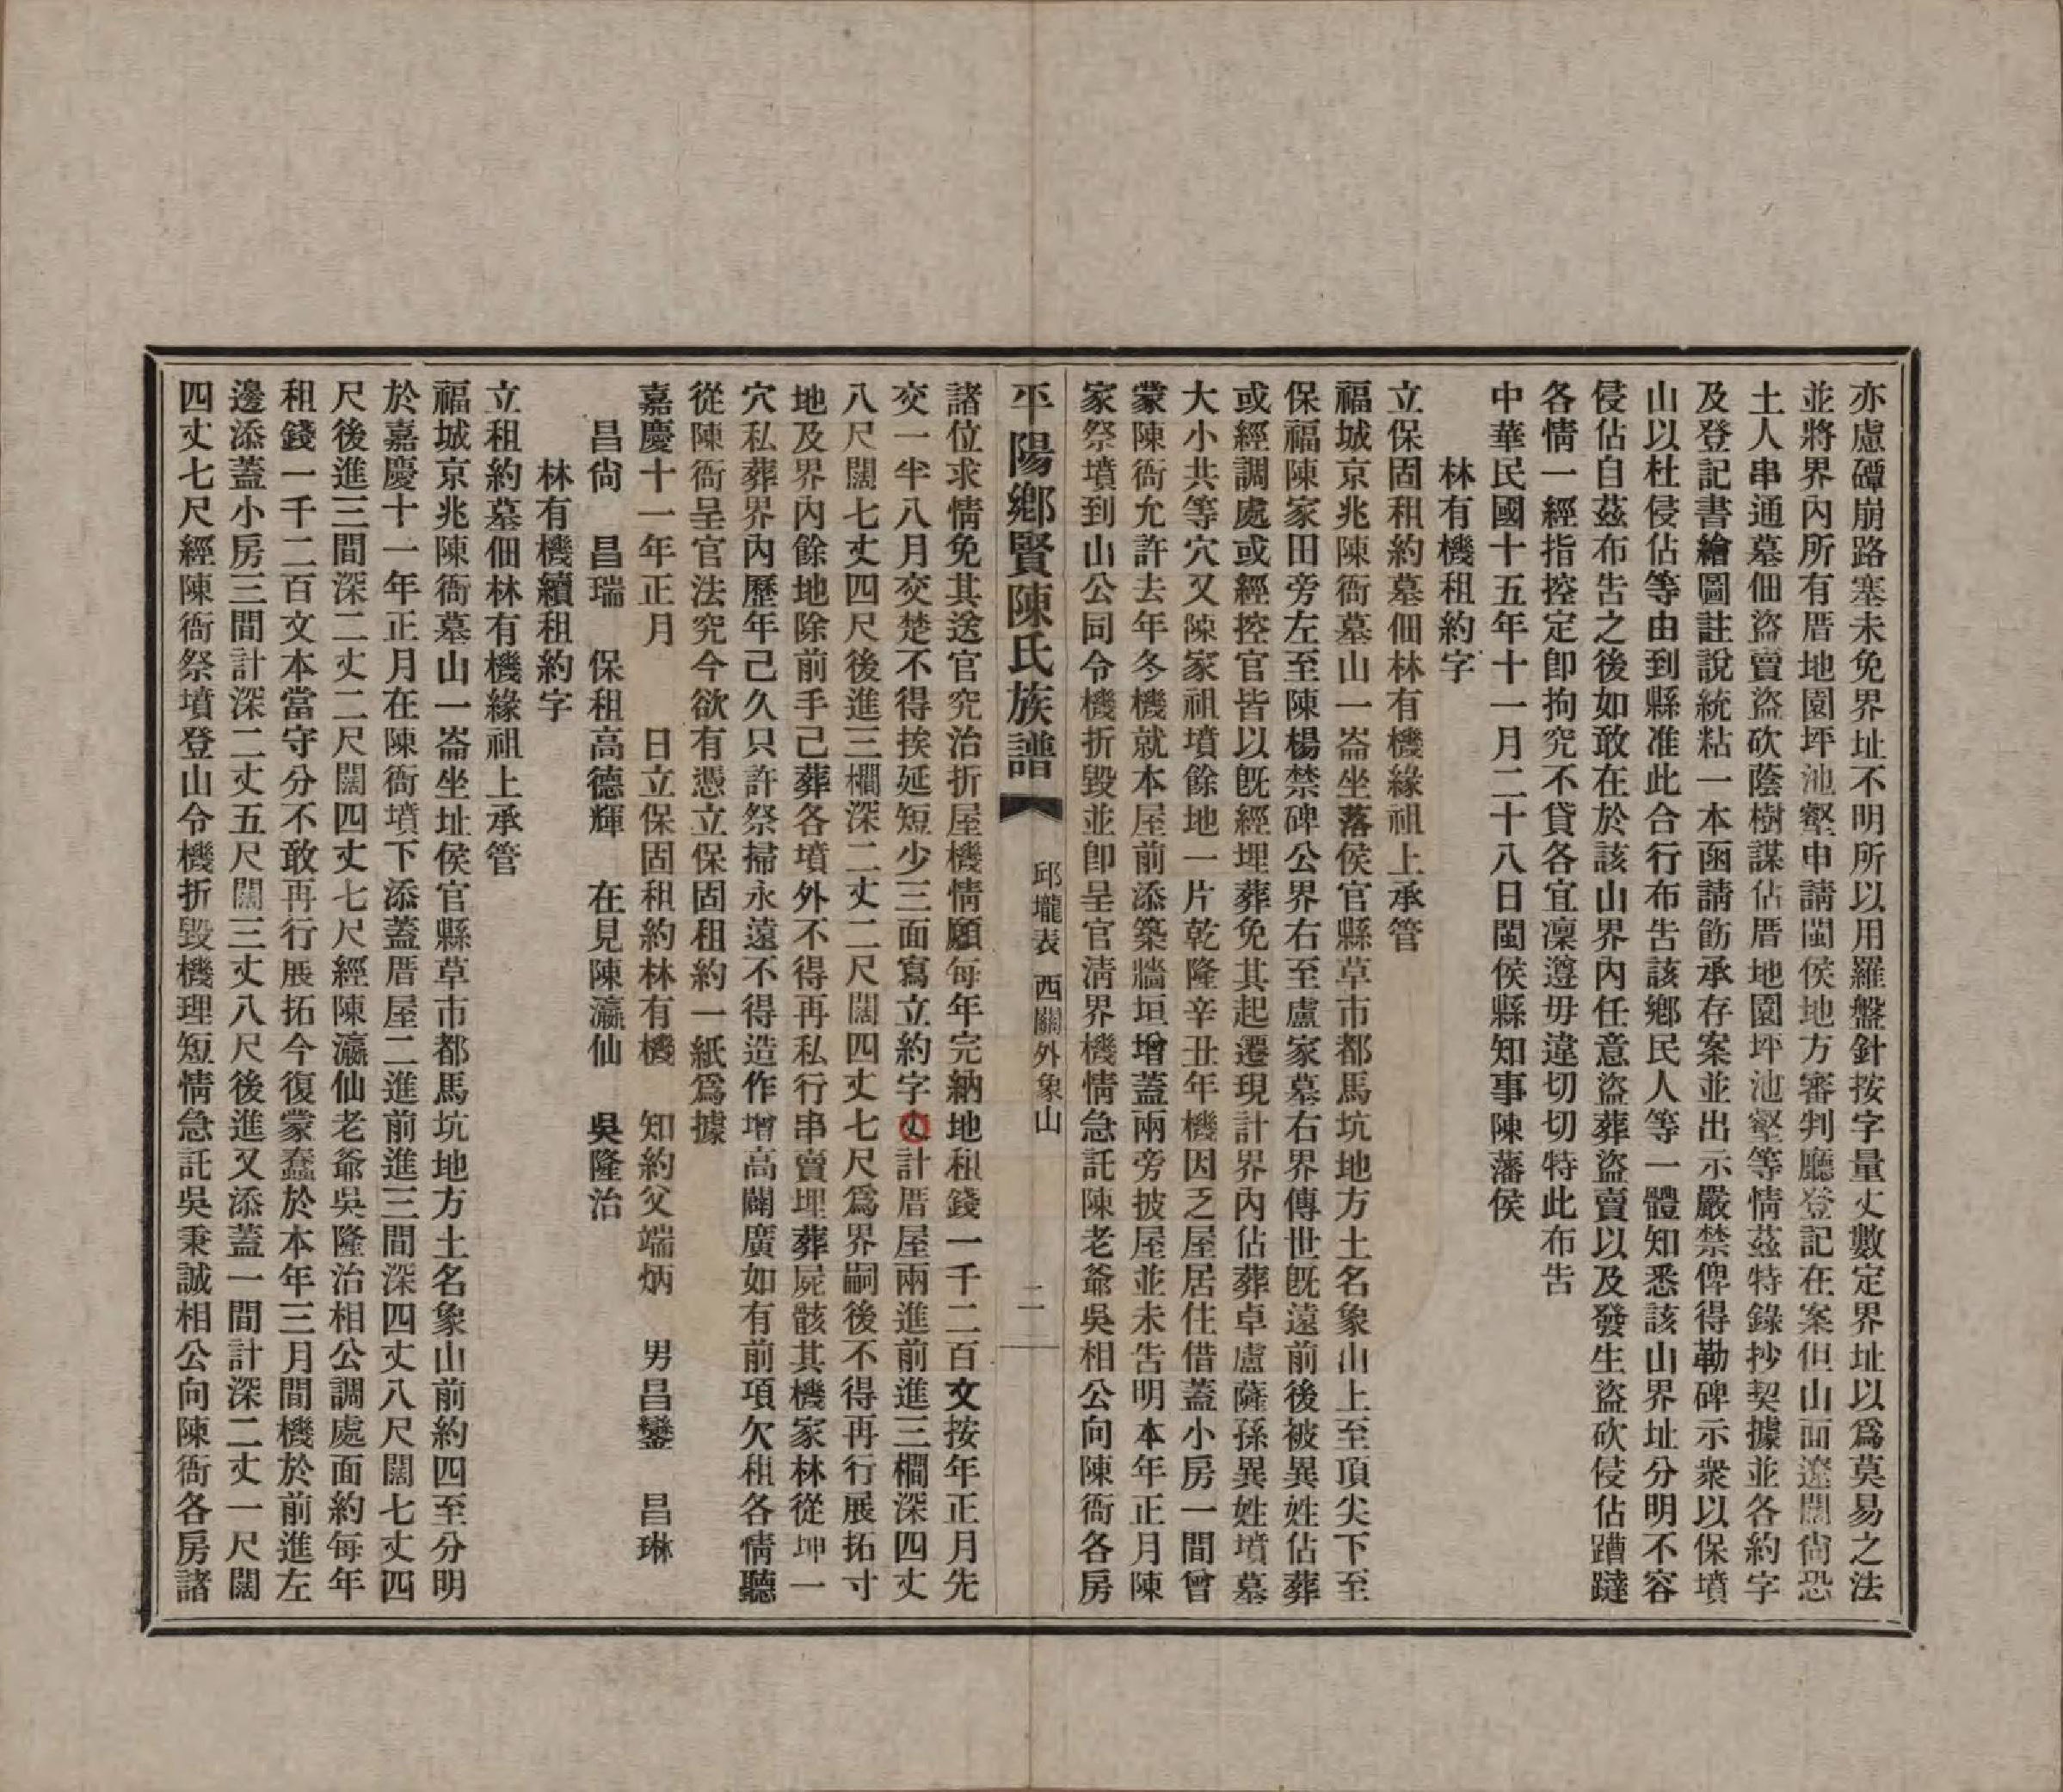 亦慮磹崩路塞未免界址不明所以用羅盤針按字量丈數定界址以爲莫易之法
並將界內所有厝地園坪池壑申請閩侯地方審判廳登記在案但山面遼闊尙恐
土人串通墓佃盜賣盜砍蔭樹謀佔厝地園坪池壑等情茲特錄抄契據並各約字
及登記書繪圖註說統粘一本函請飭承存案並出示嚴禁俾得勒碑示衆以保墳
山以杜侵佔等由到縣准此合行布吿該鄉民人等一體知悉該山界址分明不容
侵佔自茲布吿之後如敢在於該山界內任意盜葬盜賣以及發生盜砍侵佔蹧躂
各情一經指控定卽拘究不貸各宜凜遵毋違切切特此布吿
中華民國十五年十一月二十八日閩侯縣知事陳藩侯
林有機租約字
立保固租約墓佃林有機緣祖上承管
福城京兆陳衙墓山一崙坐落侯官縣草市都馬坑地方土名象山上至頂尖下至
保福陳家田旁左至陳楊禁碑公界右至盧家墓右界傳世旣遠前後被異姓佔葬
或經調處或經控官皆以旣經埋葬免其起遷現計界內佔葬卓盧薩孫異姓墳墓
大小共等穴又陳家祖墳餘地一片乾隆辛丑年機因乏屋居住借蓋小房一間曾
蒙陳衙允許去年冬機就本屋前添築牆垣增蓋兩旁披屋並未吿明本年正月陳
家祭墳到山公同令機折毀並卽呈官淸界機情急託陳老爺吳相公向陳衙各房
平陽鄉賢陳氏族譜
邱壠表 西關外象山
二一
諸位求情免其送官究治折屋機情願每年完納地租錢一千二百文按年正月先
交一半八月交楚不得挨延短少三面寫立約字丈計厝屋兩進前進三櫚深四丈
八尺闊七丈四尺後進三櫚深二丈二尺闊四丈七尺爲界嗣後不得再行展拓寸
地及界內餘地除前手己葬各墳外不得再私行串賣埋葬屍骸其機家林從坤一
穴私葬界內歷年己久只許祭掃永遠不得造作增高闢廣如有前項欠租各情聽
從陳衙呈官法究今欲有憑立保固租約一紙爲據
嘉慶十一年正月 日立保固租約林有機 知約父端炳 男昌鑾 昌琳
昌尙 昌瑞 保租高德輝 在見陳瀛仙 吳隆治
林有機續租約字
立租約墓佃林有機緣祖上承管
福城京兆陳衙墓山一崙坐址侯官縣草市都馬坑地方土名象山前約四至分明
於嘉慶十一年正月在陳衙墳下添蓋厝屋二進前進三間深四丈八尺闊七丈四
尺後進三間深二丈二尺闊四丈七尺經陳瀛仙老爺吳隆治相公調處面約每年
租錢一千二百文本當守分不敢再行展拓今復蒙蠢於本年三月間機於前進左
邊添蓋小房三間計深二丈五尺闊三丈八尺後進又添蓋一間計深二丈一尺闊
四丈七尺經陳衙祭墳登山令機折毀機理短情急託吳秉誠相公向陳衙各房諸